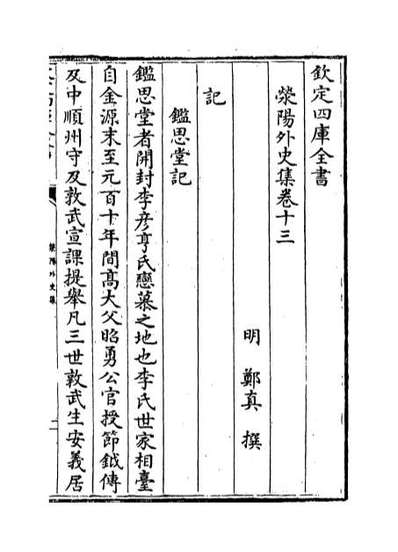 欽定四庫全書
滎陽外史集巻十三
明 鄭真 撰
記
鑑思堂記
鑑思堂者開封李彦亨氏戀慕之地也李氏世家相臺
自金源末至元百十年間髙大父昭勇公官授節鉞傳
及中順州守及敦武宣課提舉凡三世敦武生安義居
滎陽外史集